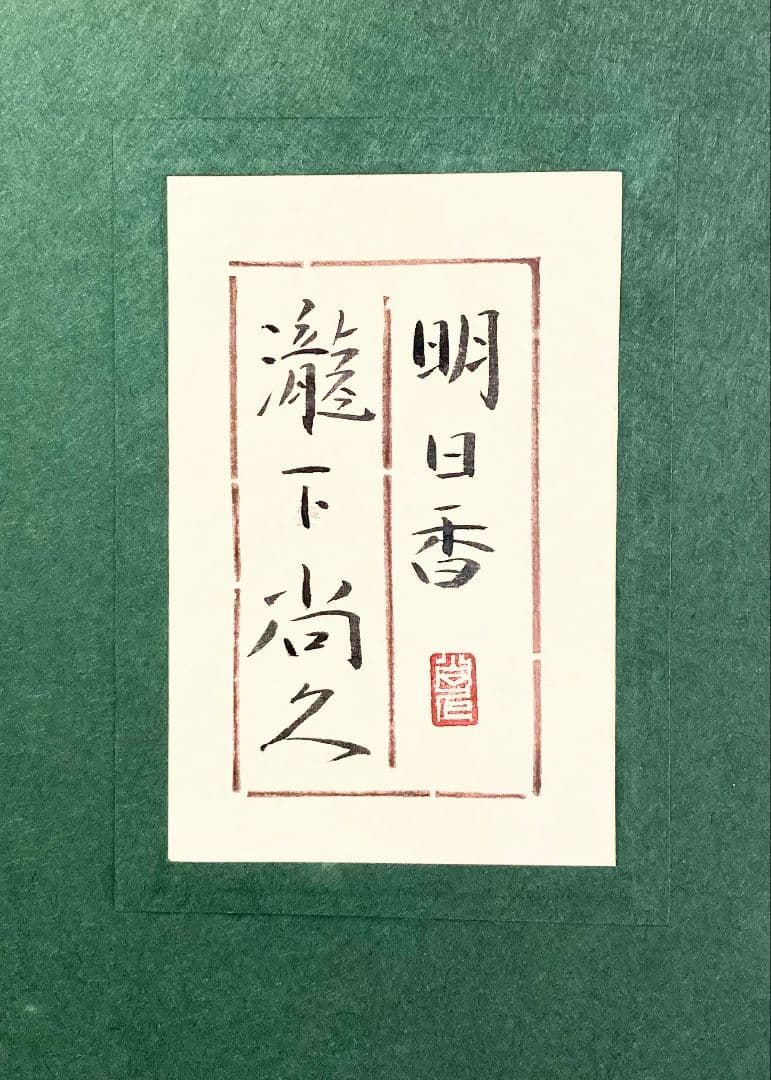 明日香
瀧下尚久